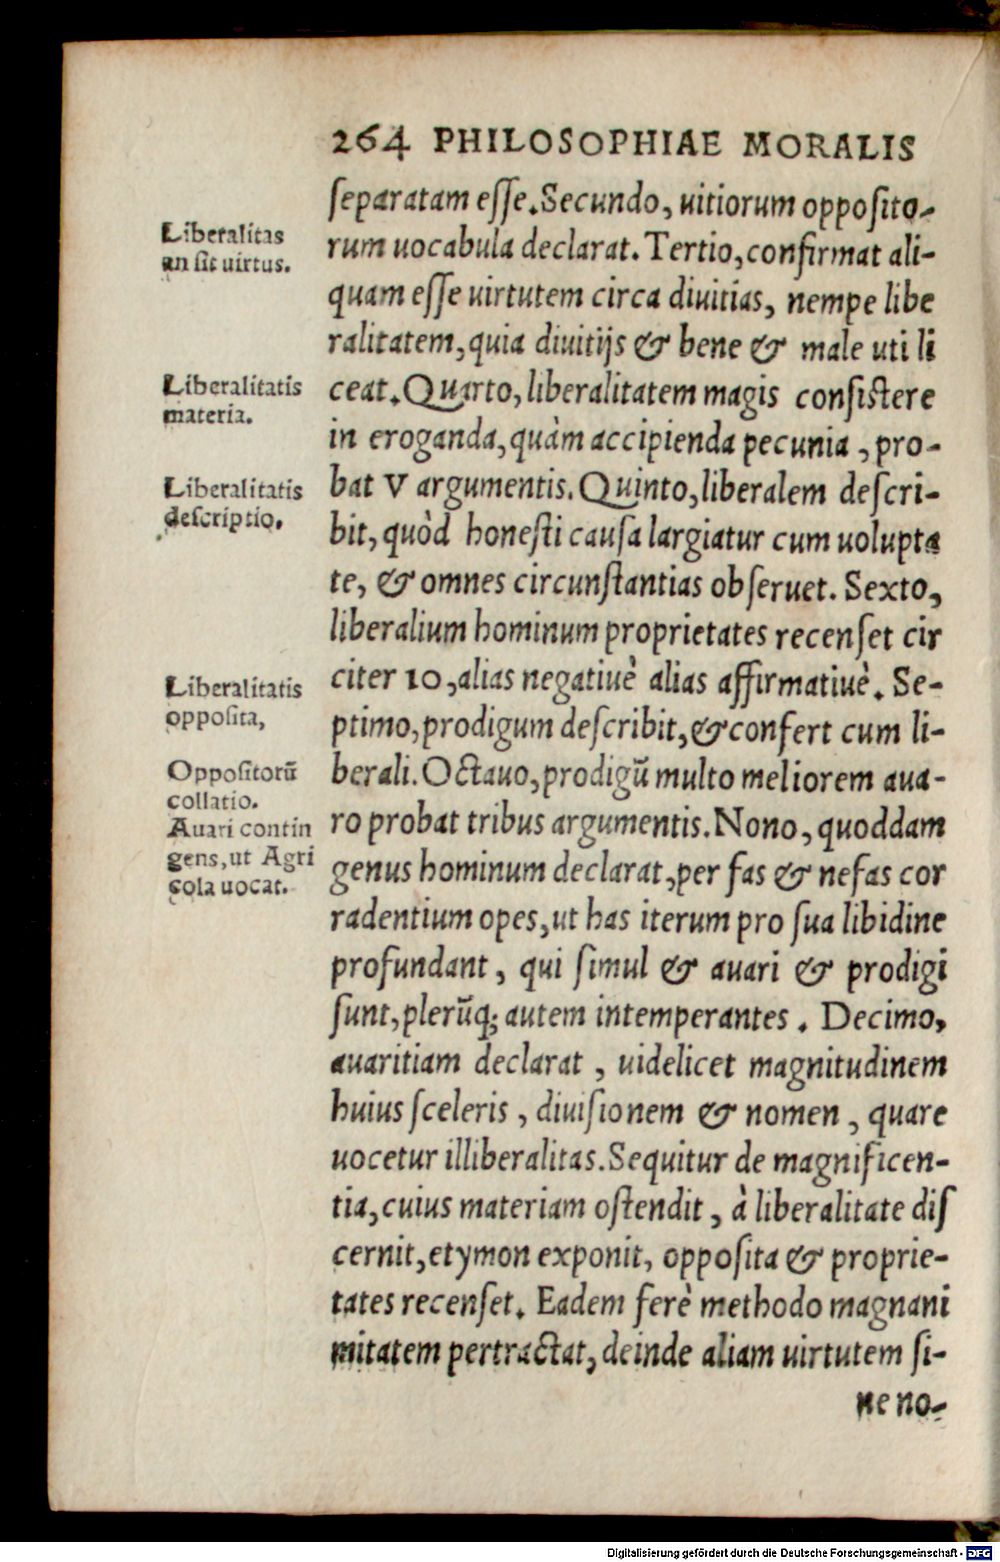 264 PHILOSOPHIAE MORALIS
ſeparatam eſſe. Secundo, uitiorum oppoſito-
rum uocabula declarat. Tertio, confirmat ali-
quam eſſe uirtutem circa diuitias, nempe libe
ralitatem, quia diuitijs & bene & male uti li
ceat. Quarto, liberalitatem magis conſiſtere
in eroganda, quàm accipienda pecunia, pro-
bat V argumentis. Quinto, liberalem deſcri-
bit, quòd honeſti cauſa largiatur cum uolupta
te, & omnes circunſtantias obſeruet. Sexto,
liberalium hominum proprietates recenſet cir
citer 10, alias negatiuè alias affirmatiuè. Se-
ptimo, prodigum deſcribit, & confert cum li-
berali. Octauo, prodigū multo meliorem aua-
ro probat tribus argumentis. Nono, quoddam
genus hominum declarat, per fas & nefas cor
radentium opes, ut has iterum pro ſua libidine
profundant, qui ſimul & auari & prodigi
ſunt, plerūq; autem intemperantes. Decimo,
auaritiam declarat, uidelicet magnitudinem
huius ſceleris, diuiſionem & nomen, quare
uocetur illiberalitas. Sequitur de magnificen-
tia, cuius materiam oſtendit, à liberalitate diſ
cernit, etymon exponit, oppoſita & proprie-
tates recenſet. Eadem ferè methodo magnani
mitatem pertractat, deinde aliam uirtutem ſi-
ne no-
Liberalitas
an ſit uirtus.
Liberalitatis
materia.
Liberalitatis
deſcriptio.
Liberalitatis
oppoſita,
Oppoſitorū
collatio.
Auari contin
gens, ut Agri
cola uocat.
Digitalisierung gefördert durch die Deutsche Forschungsgemeinschaft - DFG